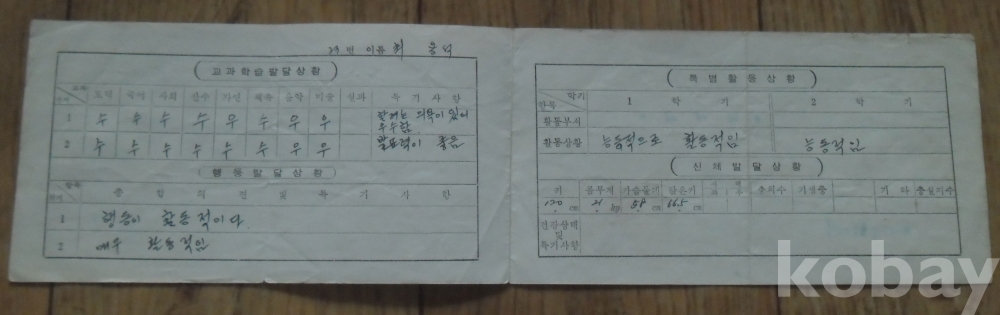 번 이름 최
교과학습발달상황
교과 도덕 국어 사회 산수 자연 체육 음악 미술 실과 특기사항
1 수 수 수 수 우 수 우 우 의욕이 있어
우수함.
2 수 수 수 수 수 수 우 우 발표력이 좋음
행동발달상황
종합의견 및 특기사항
1 행동이 활동적이다.
2 매우 활동적임
특별활동상황
학기 항목 1 학기 2 학기
활동부서
활동상황 능동적으로 활동적임 능동적임
신체발달상황
키 몸무게 가슴둘레 앉은키 기생충 기타 충실지수
120 cm 21 kg 58 cm 66.5 cm
건강상태
및
특기사항
kobay